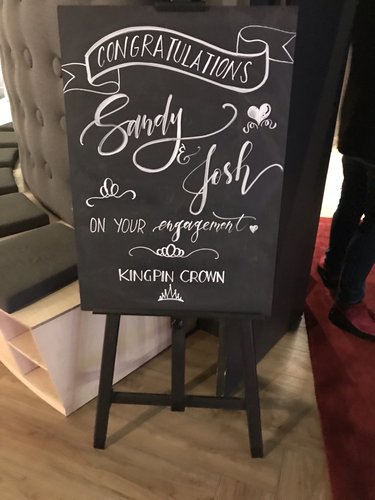 CONGRATULATIONS
Sandy
& Josh
ON YOUR engagement
KINGPIN CROWN